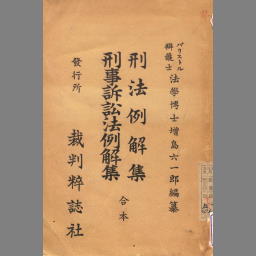 バリストル
辯護士
法學博士増島六一郎編纂
刑法例解集
刑事訴訟法例解集
合本
發行所
裁判粹誌社